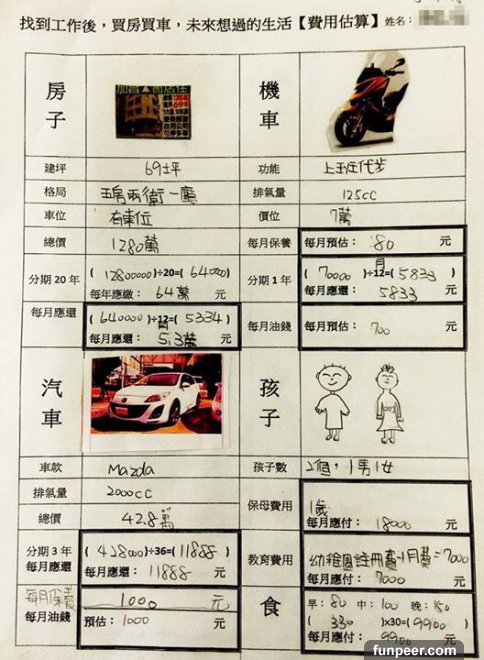 找到工作後，買房買車，未來想過的生活【費用估算】 姓名：
房子
機車
建坪 69坪 功能 上班代步
格局 五房兩衛一廳 排氣量 125cc
車位 有車位 價位 7萬
總價 1280萬 每月保養 每月預估： 80 元
分期 20 年 (12800000)÷20=(640000) 分期 1 年 (70000)÷12=(5833)
每年應繳： 64萬 元 每月應還： 5833 元
每月應還 (640000)÷12=(5334) 每月油錢 每月預估： 700 元
每月應還： 5.3萬 元
汽車
孩子
車款 Mazda 孩子數 2個，1男1女
排氣量 2000cc 保母費用 1歲
總價 42.8萬 每月應付： 18000 元
分期 3 年 (428000)÷36=(11888) 教育費用 幼稚園註冊費+月費=7000
每月應還： 11888 元 每月應付： 7000 元
每月保養 1000 元 食 早： 80 中： 100 晚： 150
每月油錢 預估： 1000 元 (330)x30=(9900)
每月應付： 9900 元
funpeer.com